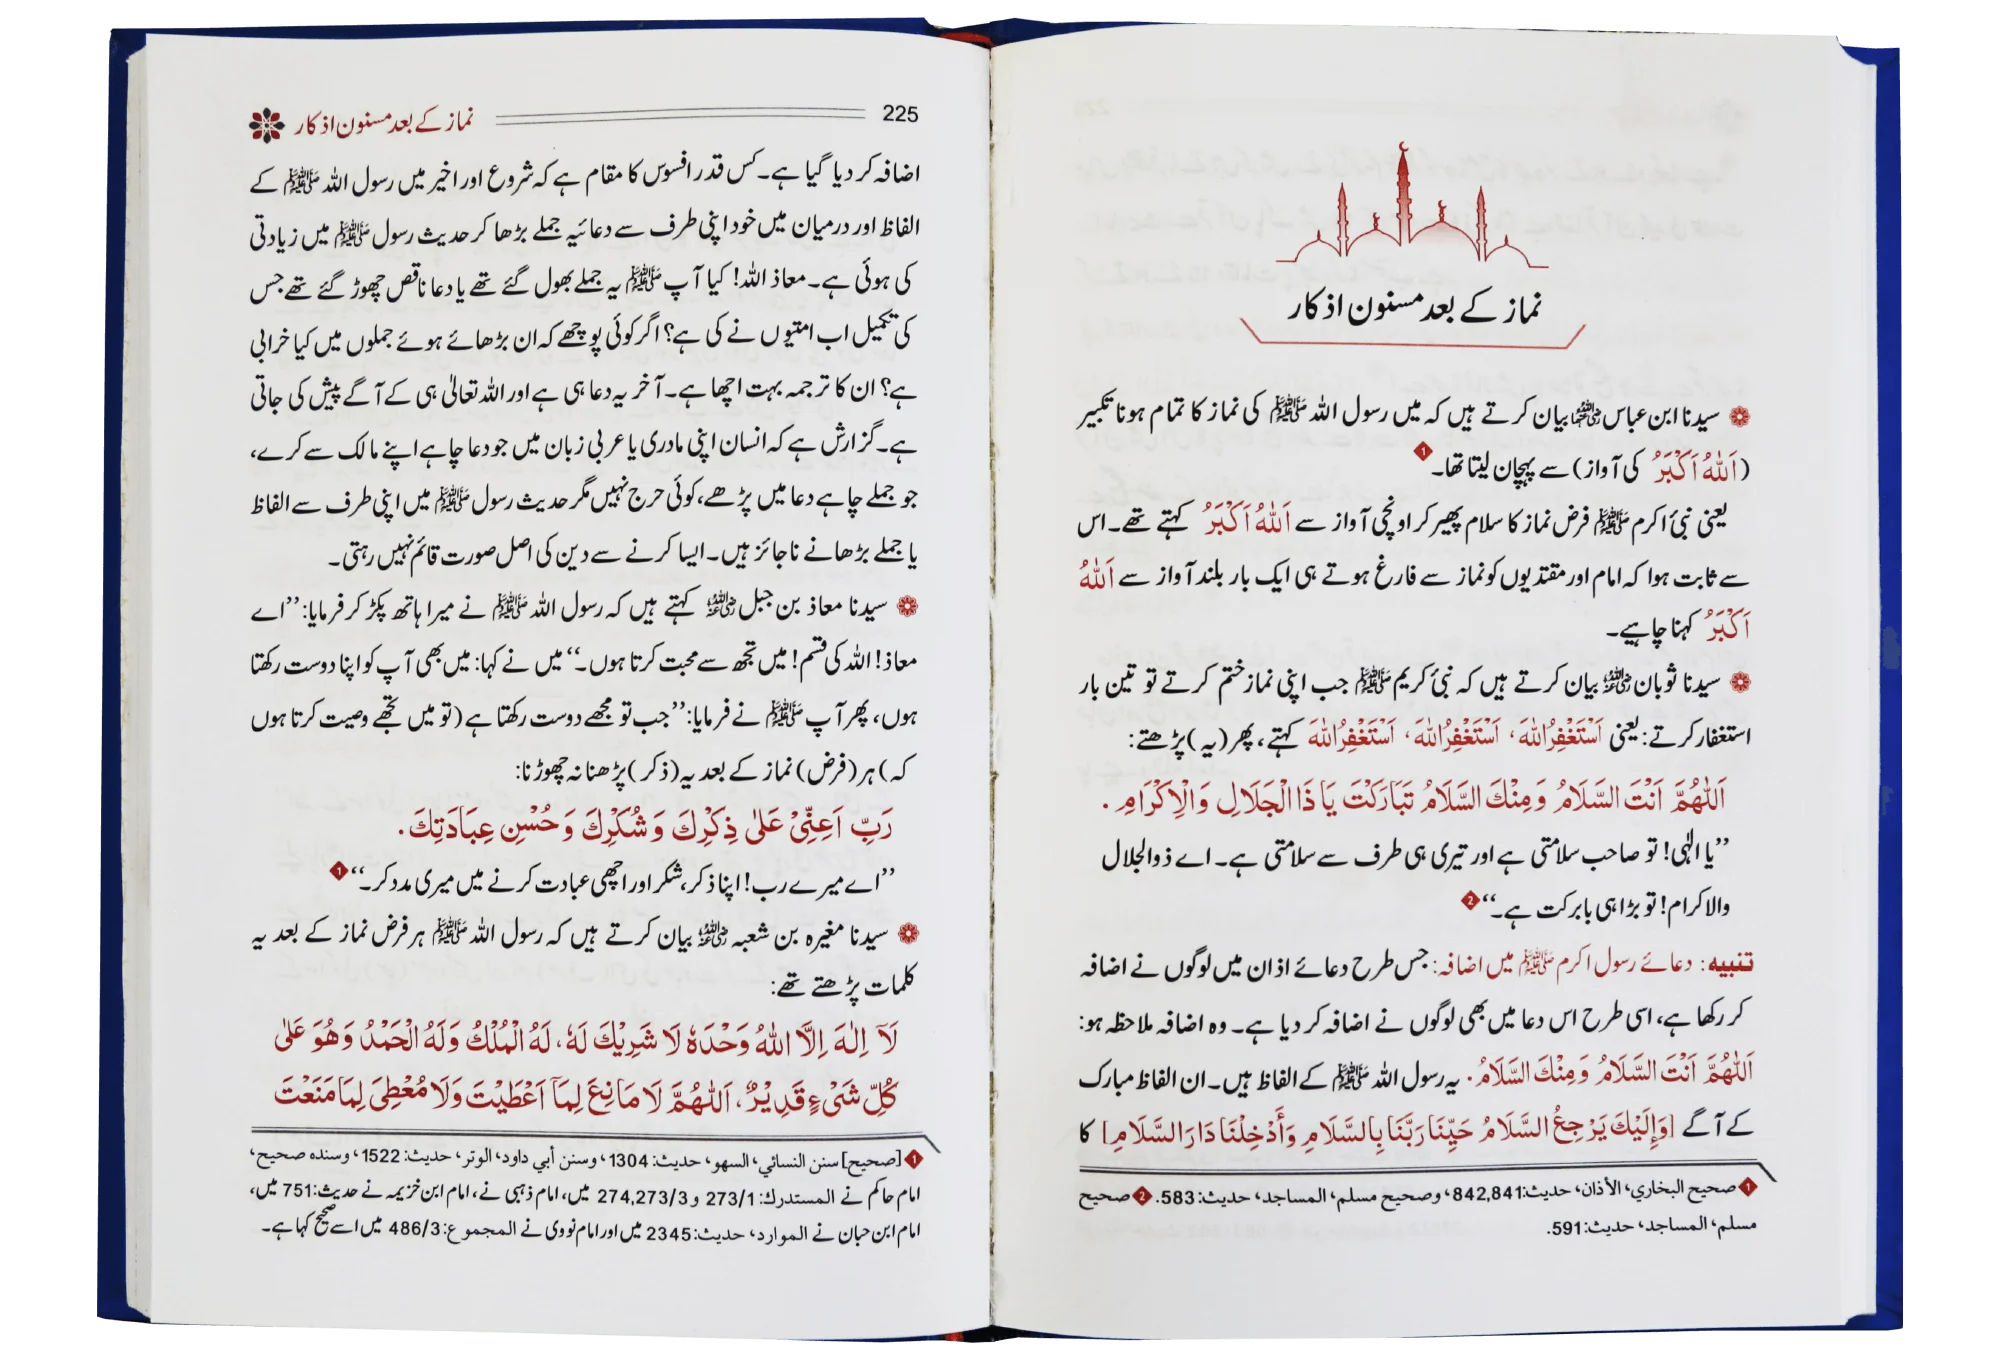 نماز کے بعد مسنون اذکار
سیدنا ابن عباس رضی اللہ عنہما بیان کرتے ہیں کہ میں رسول اللہ ﷺ کی نماز کا تمام ہونا تکبیر
(اَللّٰهُ اَكْبَرُ کی آواز) سے پہچان لیتا تھا۔ 1
یعنی نبیٔ اکرم ﷺ فرض نماز کا سلام پھیر کر اونچی آواز سے اَللّٰهُ اَكْبَرُ کہتے تھے۔ اس
سے ثابت ہوا کہ امام اور مقتدیوں کو نماز سے فارغ ہوتے ہی ایک بار بلند آواز سے اَللّٰهُ
اَكْبَرُ کہنا چاہیے۔
سیدنا ثوبان رضی اللہ عنہ بیان کرتے ہیں کہ نبیٔ کریم ﷺ جب اپنی نماز ختم کرتے تو تین بار
استغفار کرتے: یعنی اَسْتَغْفِرُاللّٰهَ، اَسْتَغْفِرُاللّٰهَ، اَسْتَغْفِرُاللّٰهَ کہتے، پھر (یہ) پڑھتے:
اَللّٰهُمَّ اَنْتَ السَّلَامُ وَمِنْكَ السَّلَامُ تَبَارَكْتَ يَا ذَا الْجَلَالِ وَالْاِكْرَامِ .
’’یا الٰہی! تو صاحب سلامتی ہے اور تیری ہی طرف سے سلامتی ہے۔ اے ذوالجلال
والاکرام! تو بڑا ہی بابرکت ہے۔‘‘ 2
تنبیہ: دعائے رسول اکرم ﷺ میں اضافہ: جس طرح دعائے اذان میں لوگوں نے اضافہ
کر رکھا ہے، اسی طرح اس دعا میں بھی لوگوں نے اضافہ کر دیا ہے۔ وہ اضافہ ملاحظہ ہو:
اَللّٰهُمَّ اَنْتَ السَّلَامُ وَمِنْكَ السَّلَامُ. یہ رسول اللہ ﷺ کے الفاظ ہیں۔ ان الفاظ مبارک
کے آگے [وَإِلَيْكَ يَرْجِعُ السَّلَامُ حَيِّنَا رَبَّنَا بِالسَّلَامِ وَأَدْخِلْنَا دَارَ السَّلَامِ] کا
1 صحيح البخاري، الأذان، حديث:842,841، وصحيح مسلم، المساجد، حديث:583. 2 صحيح
مسلم، المساجد، حديث:591.
225 نماز کے بعد مسنون اذکار
اضافہ کر دیا گیا ہے۔ کس قدر افسوس کا مقام ہے کہ شروع اور اخیر میں رسول اللہ ﷺ کے
الفاظ اور درمیان میں خود اپنی طرف سے دعائیہ جملے بڑھا کر حدیث رسول ﷺ میں زیادتی
کی ہوئی ہے۔ معاذ اللہ! کیا آپ ﷺ یہ جملے بھول گئے تھے یا دعا ناقص چھوڑ گئے تھے جس
کی تکمیل اب امتیوں نے کی ہے؟ اگر کوئی پوچھے کہ ان بڑھائے ہوئے جملوں میں کیا خرابی
ہے؟ ان کا ترجمہ بہت اچھا ہے۔ آخر یہ دعا ہی ہے اور اللہ تعالیٰ ہی کے آگے پیش کی جاتی
ہے۔ گزارش ہے کہ انسان اپنی مادری یا عربی زبان میں جو دعا چاہے اپنے مالک سے کرے،
جو جملے چاہے دعا میں پڑھے، کوئی حرج نہیں مگر حدیث رسول ﷺ میں اپنی طرف سے الفاظ
یا جملے بڑھانے ناجائز ہیں۔ ایسا کرنے سے دین کی اصل صورت قائم نہیں رہتی۔
سیدنا معاذ بن جبل رضی اللہ عنہ کہتے ہیں کہ رسول اللہ ﷺ نے میرا ہاتھ پکڑ کر فرمایا: ’’اے
معاذ! اللہ کی قسم! میں تجھ سے محبت کرتا ہوں۔‘‘ میں نے کہا: میں بھی آپ کو اپنا دوست رکھتا
ہوں، پھر آپ ﷺ نے فرمایا: ’’جب تو مجھے دوست رکھتا ہے (تو میں تجھے وصیت کرتا ہوں
کہ) ہر (فرض) نماز کے بعد یہ (ذکر) پڑھنا نہ چھوڑنا:
رَبِّ اَعِنِّيْ عَلٰى ذِكْرِكَ وَشُكْرِكَ وَحُسْنِ عِبَادَتِكَ.
’’اے میرے رب! اپنا ذکر، شکر اور اچھی عبادت کرنے میں میری مدد کر۔‘‘ 1
سیدنا مغیرہ بن شعبہ رضی اللہ عنہ بیان کرتے ہیں کہ رسول اللہ ﷺ ہر فرض نماز کے بعد یہ
کلمات پڑھتے تھے:
لَآ اِلٰهَ اِلَّا اللّٰهُ وَحْدَهٗ لَا شَرِيْكَ لَهٗ، لَهُ الْمُلْكُ وَلَهُ الْحَمْدُ وَهُوَ عَلٰى
كُلِّ شَيْءٍ قَدِيْرٌ، اَللّٰهُمَّ لَا مَانِعَ لِمَآ اَعْطَيْتَ وَلَا مُعْطِيَ لِمَا مَنَعْتَ
1 [صحيح] سنن النسائي، السهو، حديث: 1304، وسنن أبي داود، الوتر، حديث: 1522، وسنده صحيح،
امام حاکم نے المستدرك: 273/1 و 274,273/3 میں، امام ذہبی نے، امام ابن خزیمہ نے حدیث:751 میں،
امام ابن حبان نے الموارد، حديث: 2345 میں اور امام نووی نے المجموع: 486/3 میں اسے صحیح کہا ہے۔